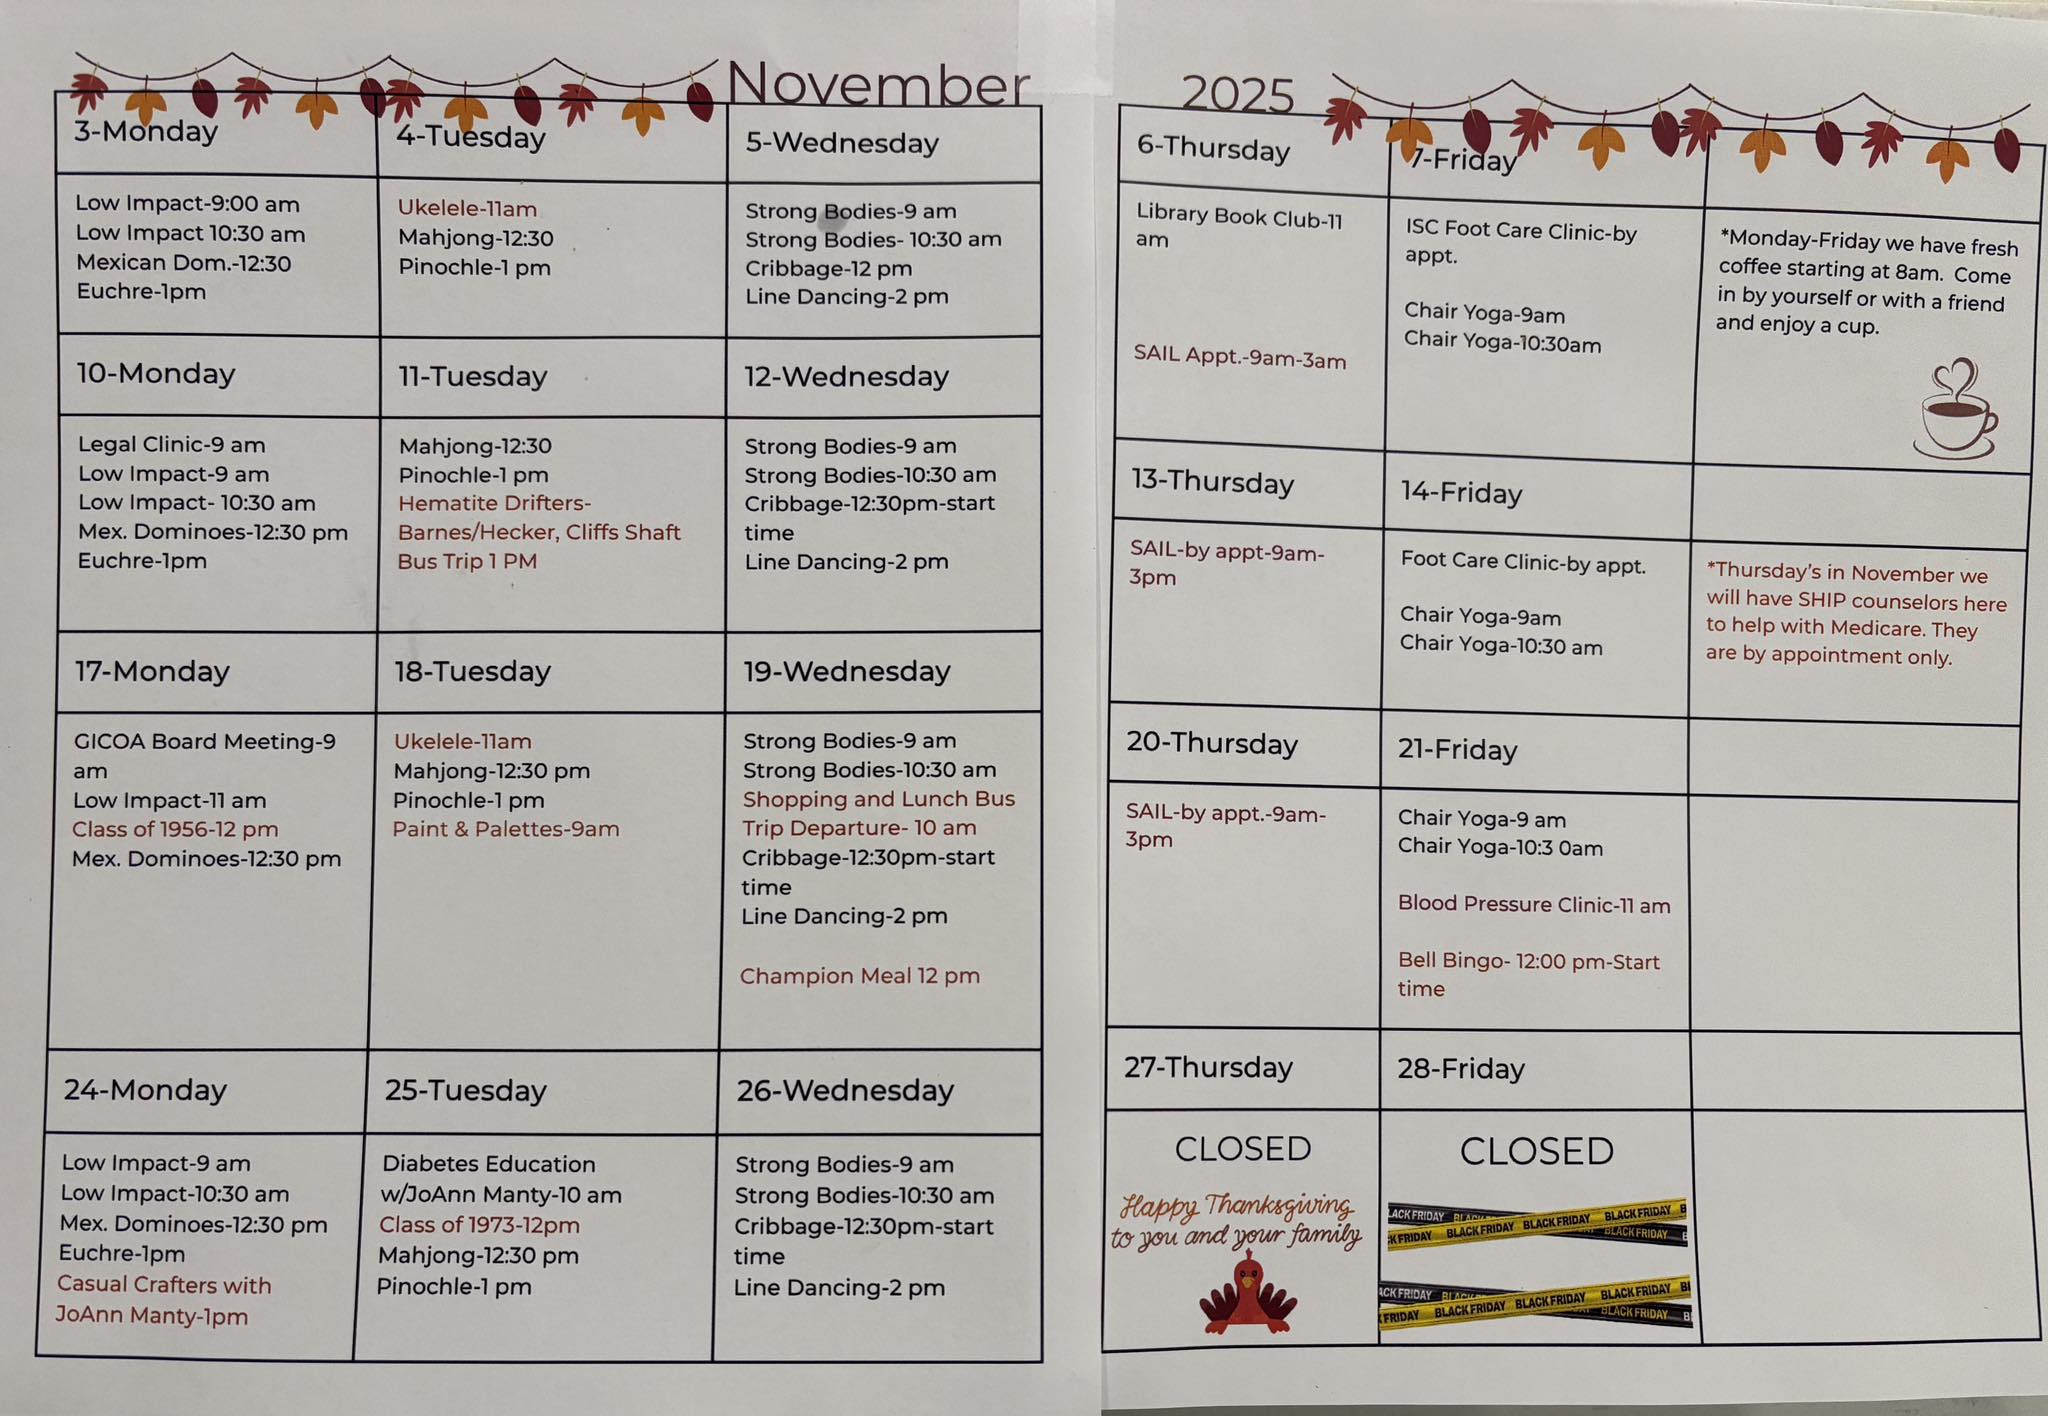 November
2025
3-Monday
4-Tuesday
5-Wednesday
6-Thursday
7-Friday
Low Impact-9:00 am
Low Impact 10:30 am
Mexican Dom.-12:30
Euchre-1pm
Ukelele-11am
Mahjong-12:30
Pinochle-1 pm
Strong Bodies-9 am
Strong Bodies- 10:30 am
Cribbage-12 pm
Line Dancing-2 pm
Library Book Club-11
am
SAIL Appt.-9am-3am
ISC Foot Care Clinic-by
appt.
Chair Yoga-9am
Chair Yoga-10:30am
*Monday-Friday we have fresh
coffee starting at 8am. Come
in by yourself or with a friend
and enjoy a cup.
10-Monday
11-Tuesday
12-Wednesday
13-Thursday
14-Friday
Legal Clinic-9 am
Low Impact-9 am
Low Impact- 10:30 am
Mex. Dominoes-12:30 pm
Euchre-1pm
Mahjong-12:30
Pinochle-1 pm
Hematite Drifters-
Barnes/Hecker, Cliffs Shaft
Bus Trip 1 PM
Strong Bodies-9 am
Strong Bodies-10:30 am
Cribbage-12:30pm-start
time
Line Dancing-2 pm
SAIL-by appt-9am-
3pm
Foot Care Clinic-by appt.
Chair Yoga-9am
Chair Yoga-10:30 am
*Thursday's in November we
will have SHIP counselors here
to help with Medicare. They
are by appointment only.
17-Monday
18-Tuesday
19-Wednesday
20-Thursday
21-Friday
GICOA Board Meeting-9
am
Low Impact-11 am
Class of 1956-12 pm
Mex. Dominoes-12:30 pm
Ukelele-11am
Mahjong-12:30 pm
Pinochle-1 pm
Paint & Palettes-9am
Strong Bodies-9 am
Strong Bodies-10:30 am
Shopping and Lunch Bus
Trip Departure- 10 am
Cribbage-12:30pm-start
time
Line Dancing-2 pm
Champion Meal 12 pm
SAIL-by appt.-9am-
3pm
Chair Yoga-9 am
Chair Yoga-10:3 0am
Blood Pressure Clinic-11 am
Bell Bingo- 12:00 pm-Start
time
24-Monday
25-Tuesday
26-Wednesday
27-Thursday
28-Friday
Low Impact-9 am
Low Impact-10:30 am
Mex. Dominoes-12:30 pm
Euchre-1pm
Casual Crafters with
JoAnn Manty-1pm
Diabetes Education
w/JoAnn Manty-10 am
Class of 1973-12pm
Mahjong-12:30 pm
Pinochle-1 pm
Strong Bodies-9 am
Strong Bodies-10:30 am
Cribbage-12:30pm-start
time
Line Dancing-2 pm
CLOSED
Happy Thanksgiving
to you and your family
CLOSED
BLACK FRIDAY BLACK FRIDAY BLACK FRIDAY
BLACK FRIDAY BLACK FRIDAY BLACK FRIDAY